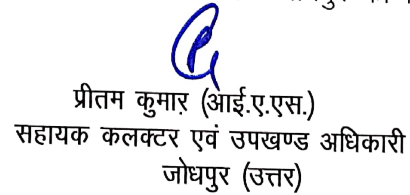 प्रीतम कुमार (आई.ए.एस.)
सहायक कलक्टर एवं उपखण्ड अधिकारी
जोधपुर (उत्तर)